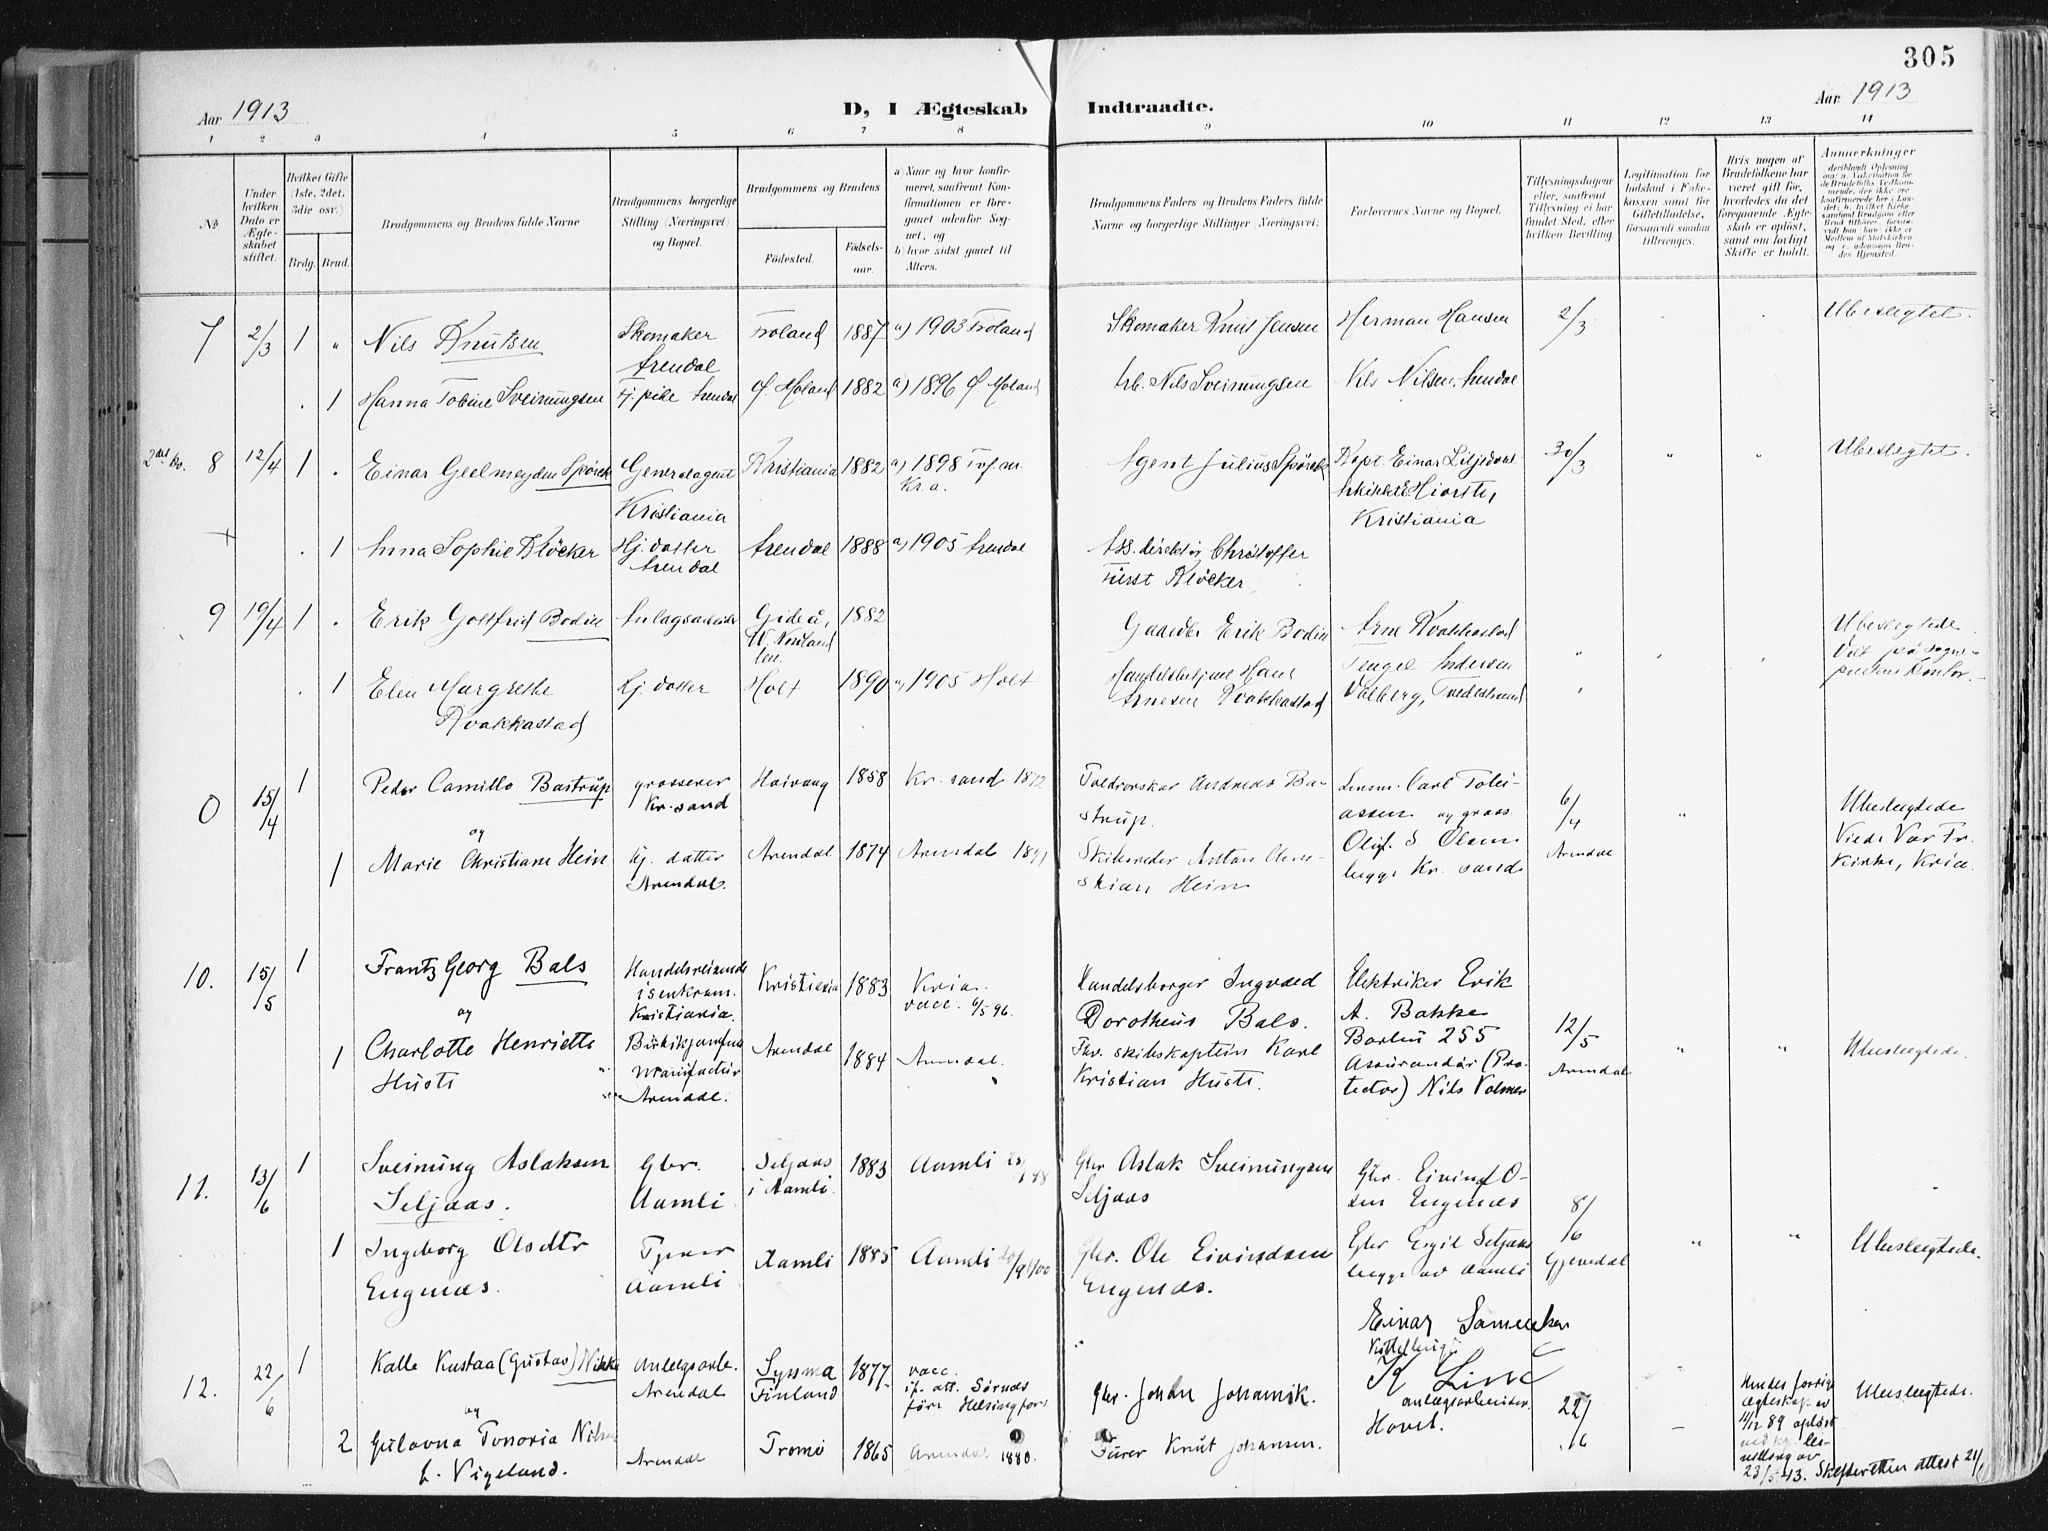 305
Aar 1913
D, I Ægteskab Indtraadte.
Aar 1913
1 2 3 4 5 6 7 8 9 10 11 12 13 14
No
Under hvilken Dato er Ægteskabet stiftet.
Hvilket Gifte (1ste, 2det, 3die osv.)
Brdg. Brud.
Brudgommens og Brudens fulde Navne
Brudgommens borgerlige Stilling (Næringsvei) og Bopæl.
Brudgommens og Brudens
Fødested.
Fødselsaar.
a) Naar og hvor konfirmeret, samfremt Konfirmationen er foregaaet udenfor Sognet, og
b) hvor sidst gaaet til Alters.
Brudgommens Faders og Brudens Faders fulde Navne og borgerlige Stillinger (Næringsvei).
Forlovernes Navne og Bopæl.
Tillysningsdagene eller, saafremt Tillysning ei har fundet Sted, efter hvilken Bevilling
Legitimation for Indskud i Enkekassen samt for Giftetilladelse, forsaavidt saadan tiltrænges.
Hvis nogen af Brudefolkene har været gift før, hvorledes da det foregaaende Ægteskab er opløst, samt om lovligt Skifte er holdt.
Anmærkninger
7 2/3 1 " Nils Knutsen Skomaker Arendal Froland 1887 a) 1903 Froland Skomaker Knut Jensen Herman Hansen 2/3 Ubeslegtet.
1 Hanna Tobine Sveinungsen Tj. pike Arendal Ø. Moland 1882 a) 1896 Ø. Moland Arb. Nils Sveinungsen Nils Nilsen, Arendal
8 12/4 1 Einar Geelmeyden Spörck Generalagent Kristiania Kristiania 1882 a) 1898 Kr.a. Agent Julius Spörck Kapt. Einar Liljedahl Kristiania 30/3 " " Ubeslegtet.
1 Anna Sophie Klöcker Hj. datter Arendal Arendal 1888 a) 1905 Arendal Ass. direktör Christoffer Fürst Klöcker
9 19/4 1 Erik Gottfrid Bodin Anlagsarbeider Gideå, W. Norrland len. 1882 Gaardbr. Erik Bodin Arne Kvakkestad Ubeslegtede
1 Elen Margrethe Kvakkastad Hj. datter Holt 1890 a) 1905 Holt Handelsbetjent Hans Arnesen Kvakkastad Tengel Andersen Valberg, Tvedestrand
0 15/4 1 Peder Camillo Bastrup grosserer Kr.sand Haivaag 1858 Kr. sand 1872 Toldroerskar Andreas Bastrup. Lensm. Carl Tobiassen og gross. Oluf. S Olsen begge Kr. sand 6/4 Arendal " Ubeslegtede Viede Vor Fr. kirke, Kria.
og
1 Marie Christiane Hein hj. datter Arendal. Arendal 1874 Arendal Skibsreder Anton Christian Hein
10. 15/5 1 Frantz Georg Bals Handelsreisende isenkram. Kristiania. Kristiania 1883 Kria. vacc. 6/5 96. Handelsborger Ingvald Dorotheus Bals. Elektriker Erik A. Bakke Barbu 255 12/5 Arendal
og
1 Charlotte Henriette Husti manufactur Arendal. Arendal 1884 Arendal. Fhv. skibskaptein Karl Kristian Husti. Assurandør (Protector) Nils Volmer " " Ubeslegtede.
11. 13/6 1 Sveinung Aslaksen Seljaas. Gbr. Aamli Seljaas i Aamli. 1883 Aamli Gbr Aslak Sveinungsen Seljaas Gbr. Eivind Olsen Engenes 8/6 Gjøvedal
1 Ingeborg Olsdtr Engenæs. Tjener Aamli Aamli 1885 Aamli Gbr. Ole Eivindsen Engenæs. Gbr Ergil Seljaas begge av Aamli " " Ubeslegtede.
12. 22/6 1 Kalle Kustaa (Gustav) Nikke Anlegsarb. Arendal Sysmæ Finland 1877 vacc. if. att. Sørnæs förs. Helsingfors Gbr. Johan Johannik. Einar Samuelsen K Lind anlægsarbeider. Hovet. 22/6 Hendes forrige ægteskap av 11/12 89 opløst ved kgl. bevilling av 23/5 13. Skifteretten attest 21/ Ubeslegtede.
og
2 Gulovna Tonoria Nilsen f. Vigeland. Arendal Tromø 1865 Arendal 1880. Fører Knut Johansen.